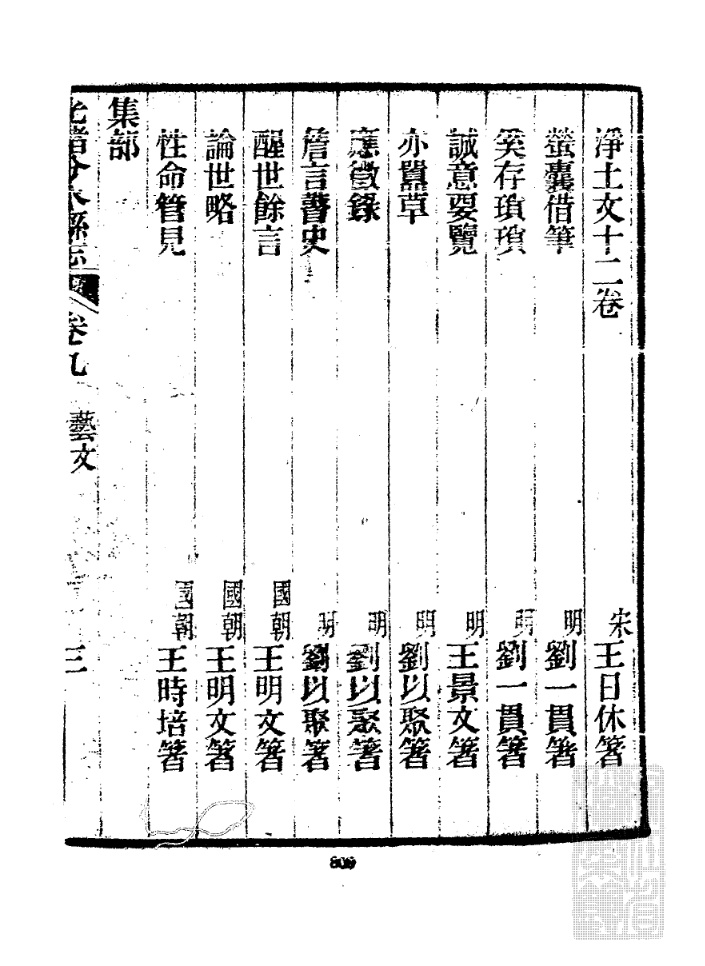 淨土文十二卷 宋王日休箸
螢囊借筆 明劉一貫箸
奚存瑣瑣 明劉一貫箸
誠意要覽 明王景文箸
亦囂草 明劉以聚箸
應徵錄 明劉以聚箸
詹言瞽史 明劉以聚箸
醒世餘言 國朝王明文箸
論世略 國朝王明文箸
性命管見 國朝王時培箸
集部
光緒分水縣志 卷九 藝文 三
809